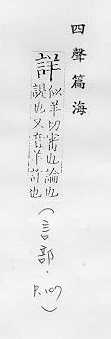 四聲篇海
詳
似羊切審也論也
諟也又音羊詐也
(言部.
P.107)